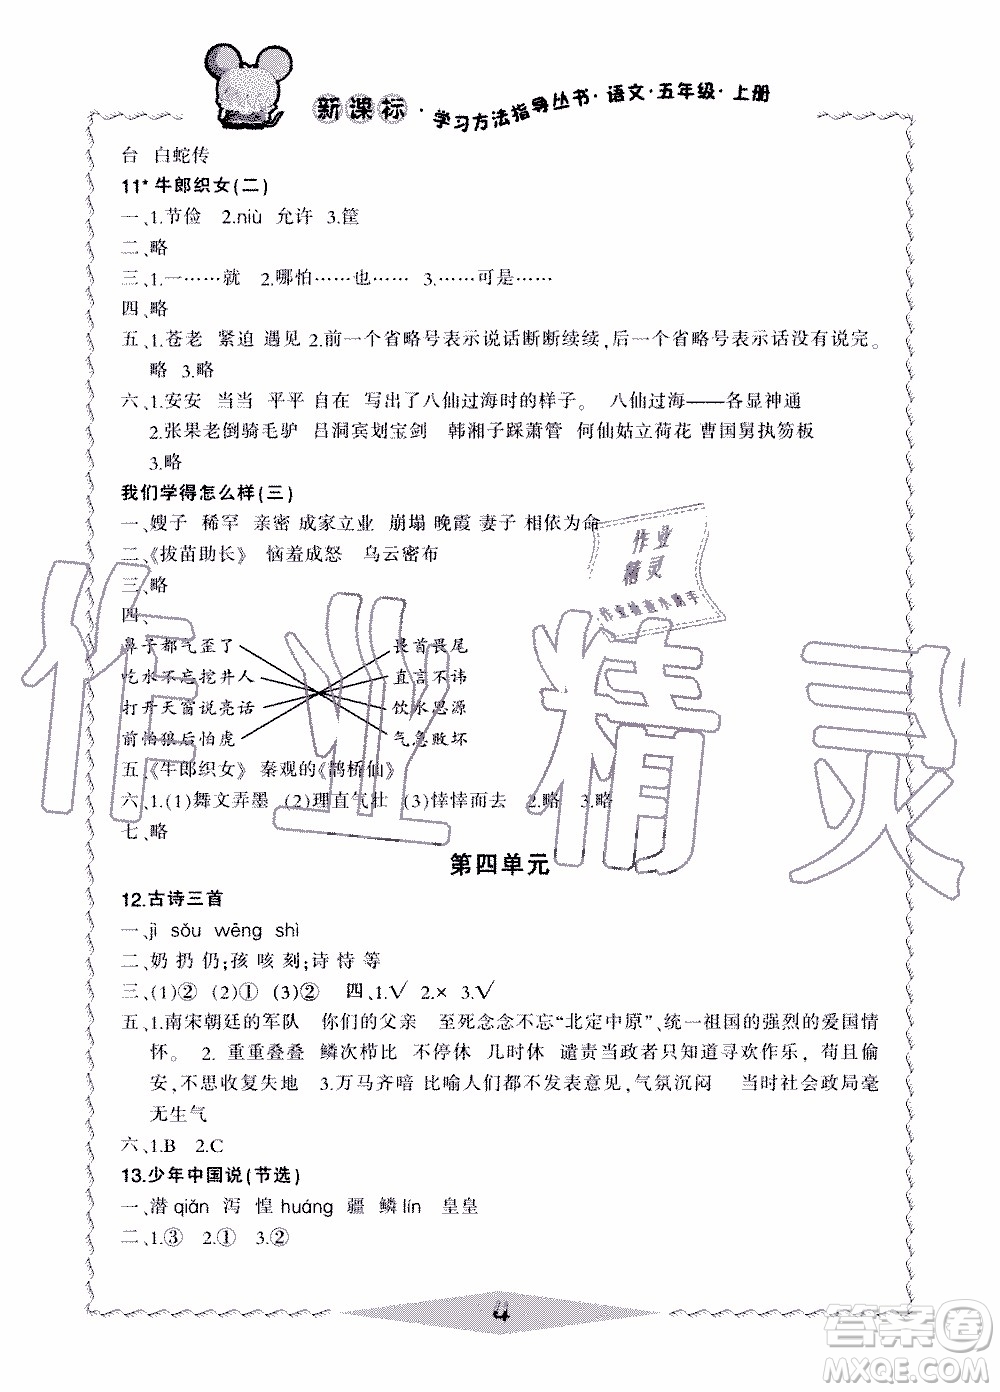 新课标·学习方法指导丛书·语文·五年级·上册
台 白蛇传
11*牛郎织女(二)
一、1.节俭 2.niù 允许 3.筐
二、略
三、1.一……就 2.哪怕……也…… 3.……可是……
四、略
五、1.苍老 紧迫 遇见 2.前一个省略号表示说话断断续续,后一个省略号表示话没有说完。
略 3.略
六、1.安安 当当 平平 自在 写出了八仙过海时的样子。 八仙过海——各显神通
2.张果老倒骑毛驴 吕洞宾划宝剑 韩湘子踩萧管 何仙姑立荷花 曹国舅执笏板
3.略
我们学得怎么样(三)
一、嫂子 稀罕 亲密 成家立业 崩塌 晚霞 妻子 相依为命
二、《拔苗助长》 恼羞成怒 乌云密布
三、略
四、
鼻子都气歪了 畏首畏尾
吃水不忘挖井人 直言不讳
打开天窗说亮话 饮水思源
前怕狼后怕虎 气急败坏
五、《牛郎织女》 秦观的《鹊桥仙》
六、1.(1)舞文弄墨 (2)理直气壮 (3)悻悻而去 2.略 3.略
七、略
第四单元
12.古诗三首
一、jì sǒu wēng shì
二、奶 扔 仍;孩 咳 刻;诗 恃 等
三、(1)② (2)① (3)② 四、1.√ 2.× 3.√
五、1.南宋朝廷的军队 你们的父亲 至死念念不忘“北定中原”、统一祖国的强烈的爱国情
怀。 2. 重重叠叠 鳞次栉比 不停休 几时休 谴责当政者只知道寻欢作乐, 苟且偷
安,不思收复失地 3.万马齐喑 比喻人们都不发表意见,气氛沉闷 当时社会政局毫
无生气
六、1.B 2.C
13.少年中国说(节选)
一、潜qián 泻 惶huáng 疆 鳞lín 皇皇
二、1.③ 2.① 3.②
4
作业精灵
作业精灵
作业检查小助手
答案圈
MXQE.COM